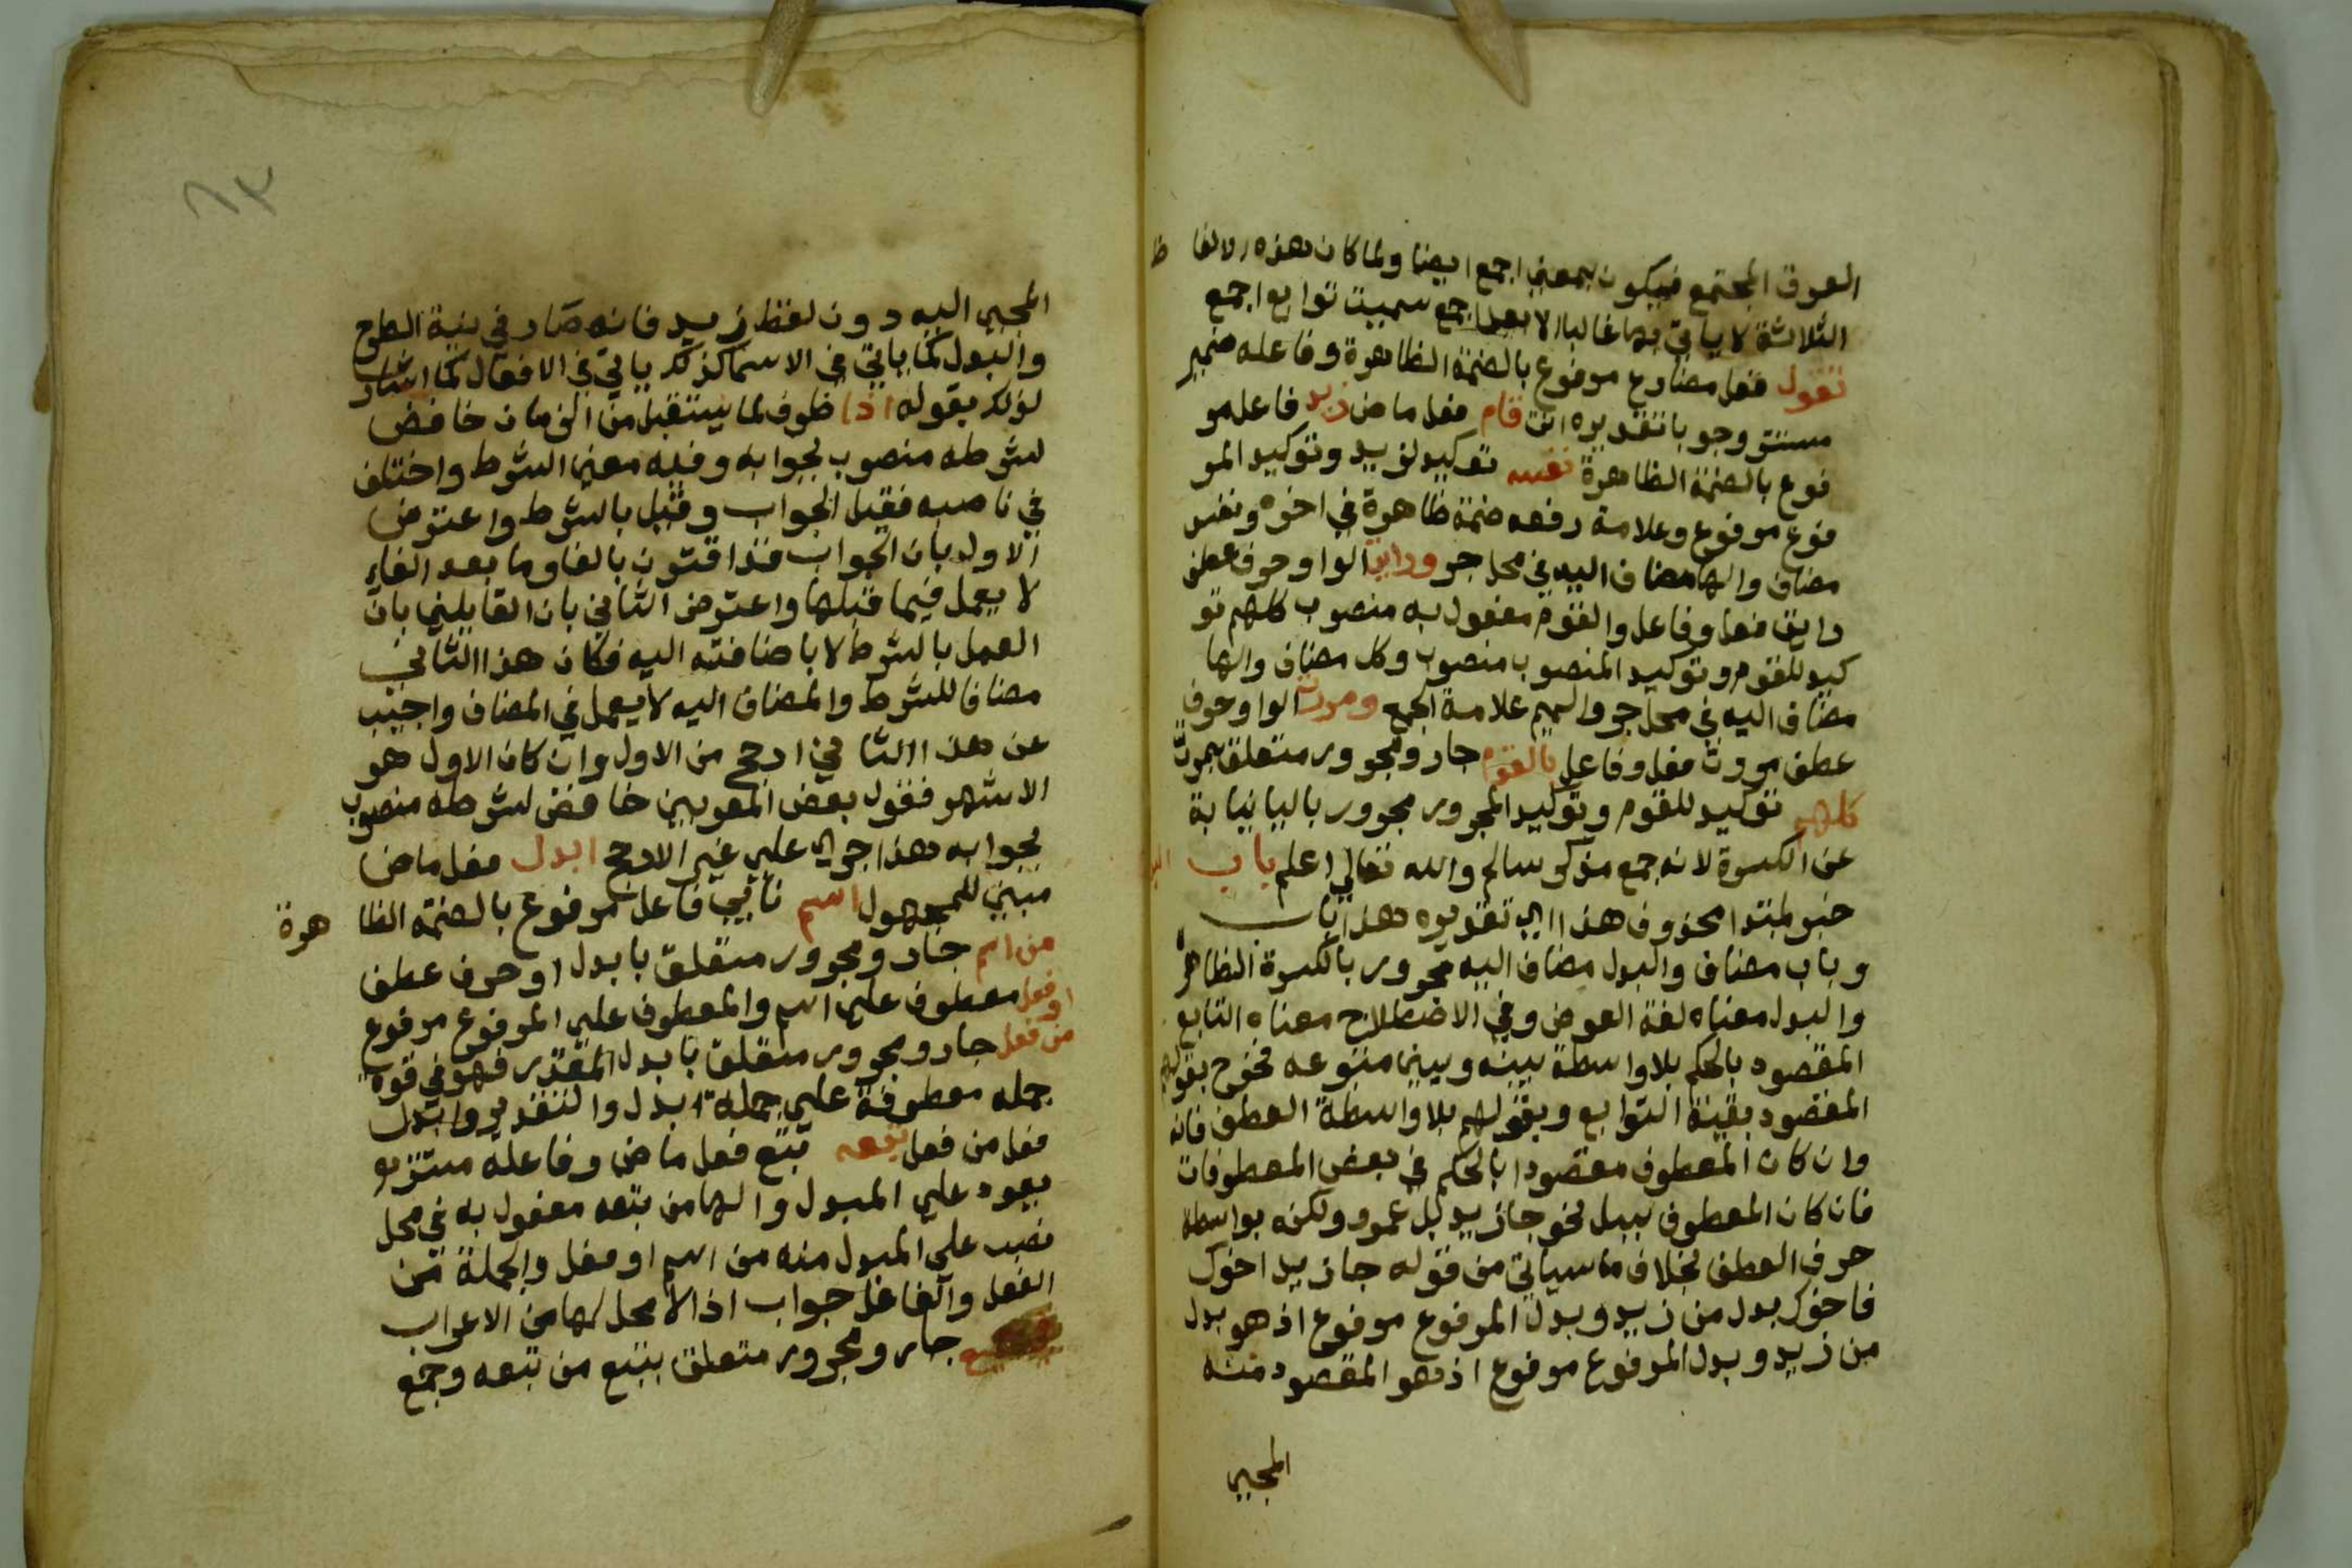 العرق المجتمع فيكون بمعني اجمع ايضا ولما كان هذه الالفا ظ
الثلاثة لا ياتي بها غالبا الا بعد اجمع سميت توابع اجمع
تقول فعل مضارع مرفوع بالضمة الظاهرة وفاعله ضمير
مستتر وجوبا تقديره انت قام فعل ماض زيد فاعل مر
فوع بالضمة الظاهرة نفسه توكيد لزيد وتوكيد المر
فوع مرفوع وعلامة رفعه ضمة ظاهرة في اخره ونفس
مضاف والها مضاف اليه في محل جر ورايت الواو حرف عطف
رايت فعل وفاعل والقوم مفعول به منصوب كلهم تو
كيد للقوم وتوكيد المنصوب منصوب وكل مضاف والها
مضاف اليه في محل جر والميم علامة الجمع ومررت الواو حرف
عطف مررت فعل وفاعل بالقوم جار ومجرور متعلق بمررت
كلهم توكيد للقوم وتوكيد المجرور مجرور باليا نيابة
عن الكسرة لانه جمع مذكر سالم والله تعالي اعلم باب
خبر لمبتدا محذوف هذا اي تقديره هذا باب
وباب مضاف والبدل مضاف اليه مجرور بالكسرة الظاهرة
والبدل معناه لغة العوض وفي الاصطلاح معناه التابع
المقصود بالحكم بلا واسطة بينه وبين متبوعه فخرج بقولهم
المقصود بقية التوابع وبقولهم بلا واسطة العطف فانه
وان كان المعطوف مقصودا بالحكم في بعض المعطوفات
فان كان المعطوف ببل نحو جا زيد بل عمرو ولكنه بواسطة
حرف العطف بخلاف ما سياتي من قوله جا زيد اخوك
فاخوك بدل من زيد وبدل المرفوع مرفوع اذ هو بدل
من زيد وبدل المرفوع مرفوع اذ هو المقصود منه
المجيي
٦٣
المجيي اليه دون لفظ زيد فانه صار في نية الطرح
والبدل كما ياتي في الاسما كذلك ياتي في الافعال كما اشار
لذلك بقوله اذا ظرف لما يستقبل من الزمان خافض
لشرطه منصوب بجوابه وفيه معني الشرط واختلف
في ناصبه فقيل الجواب وقيل بالشرط واعترض
الاول بان الجواب قد اقترن بالفا وما بعد الفاء
لا يعمل فيما قبلها واعترض الثاني بان القايلين بان
العمل بالشرط لا باضافته اليه فكان هذا الثاني
مضافا للشرط والمضاف اليه لا يعمل في المضاف واجيب
عن هذا الثاني ارجح من الاول وان كان الاول هو
الاشهر فقول بعض المعربين خافض لشرطه منصوب
بجوابه هذا جري علي غير الارجح ابدل فعل ماض
مبني للمجهول اسم نائب فاعل مرفوع بالضمة الظا هرة
من اسم جار ومجرور متعلق بابدل او حرف عطف
او فعل معطوف علي اسم والمعطوف علي المرفوع مرفوع
من فعل جار ومجرور متعلق بابدل المقدر فهو في قوة
جمله معطوفة علي جملة ابدل والتقدير وابدل
فعل من فعل تبعه تبع فعل ماض وفاعله مستتر
يعود علي المبدل والها من تبعه مفعول به في محل
نصب علي المبدل منه من اسم او فعل والجملة من
الفعل والفاعل جواب اذا لا محل لها من الاعراب
جار ومجرور متعلق بتبع من تبعه وجمع